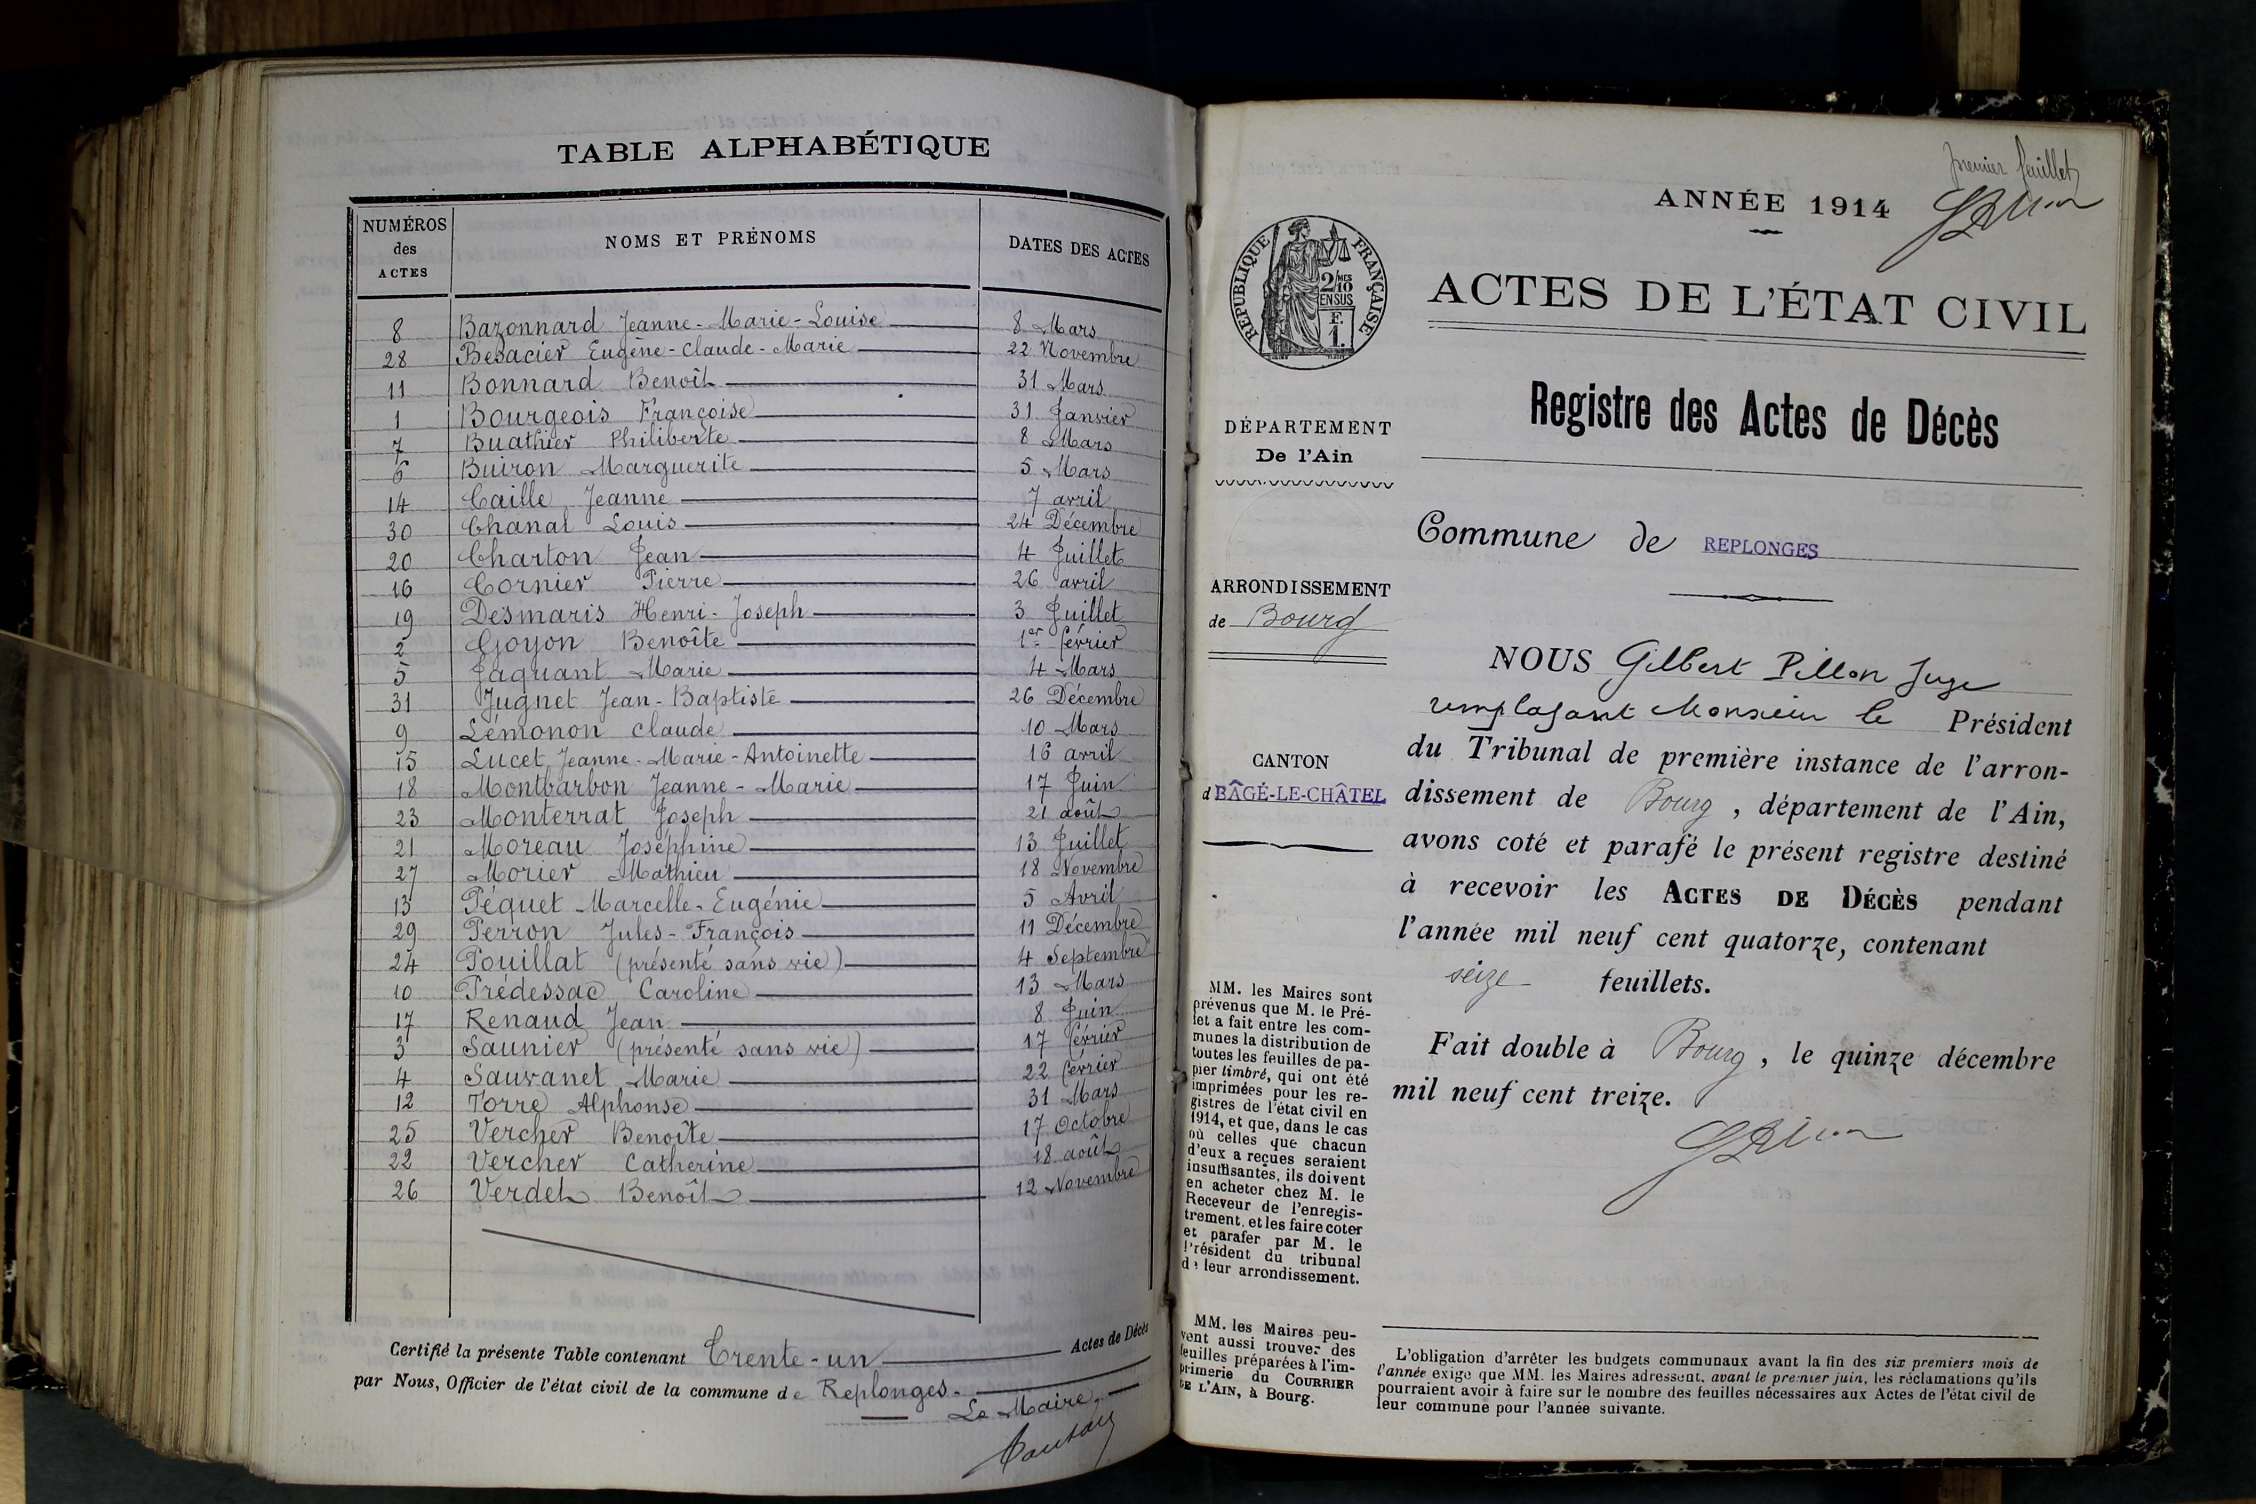 TABLE ALPHABÉTIQUE
NUMÉROS des ACTES NOMS ET PRÉNOMS DATES DES ACTES
8 Bazonnard Jeanne-Marie-Louise 8 Mars
28 Besacier Eugène-Claude-Marie 22 Novembre
11 Bonnard Benoît 31 Mars
1 Bourgeois Françoise 31 Janvier
7 Buathier Philiberte 8 Mars
6 Buiron Marguerite 5 Mars
14 Caille Jeanne 7 avril
30 Chanal Louis 24 Décembre
20 Charton Jean 4 Juillet
16 Cornier Pierre 26 avril
19 Desmaris Henri-Joseph 3 Juillet
2 Goyon Benoîte 1er février
5 Jaquant Marie 4 Mars
31 Jugnet Jean-Baptiste 26 Décembre
9 Lémonon Claude 10 Mars
15 Lucet Jeanne-Marie-Antoinette 16 avril
18 Montbarbon Jeanne-Marie 17 Juin
23 Monterrat Joseph 21 août
21 Moreau Joséphine 13 Juillet
27 Morier Mathieu 18 Novembre
13 Péquet Marcelle-Eugénie 5 Avril
29 Perron Jules-François 11 Décembre
24 Pouillat (présenté sans vie) 4 Septembre
10 Prédessac Caroline 13 Mars
17 Renaud Jean 8 Juin
3 Saunier (présenté sans vie) 17 février
4 Sauvanet Marie 22 février
12 Torre Alphonse 31 Mars
25 Vercher Benoîte 17 Octobre
22 Vercher Catherine 18 août
26 Verdet Benoît 12 Novembre
Certifié la présente Table contenant Trente-un Actes de Décès
par Nous, Officier de l'état civil de la commune de Replonges.
Le Maire,
premier feuillet
ANNÉE 1914
RÉPUBLIQUE FRANÇAISE
2/10 MES
EN SUS
F.
1.
ACTES DE L'ÉTAT CIVIL
Registre des Actes de Décès
DÉPARTEMENT
De l'Ain
Commune de REPLONGES
ARRONDISSEMENT
de Bourg
CANTON
d BÂGÉ-LE-CHÂTEL
NOUS Gilbert Pillon Juge
remplaçant Monsieur le Président
du Tribunal de première instance de l'arron-
dissement de Bourg, département de l'Ain,
avons coté et parafé le présent registre destiné
à recevoir les ACTES DE DÉCÈS pendant
l'année mil neuf cent quatorze, contenant
seize feuillets.
Fait double à Bourg, le quinze décembre
mil neuf cent treize.
MM. les Maires sont
prévenus que M. le Pré-
fet a fait entre les com-
munes la distribution de
toutes les feuilles de pa-
pier timbré, qui ont été
imprimées pour les re-
gistres de l'état civil en
1914, et que, dans le cas
où celles que chacun
d'eux a reçues seraient
insuffisantes, ils doivent
en acheter chez M. le
Receveur de l'enregis-
trement, et les faire coter
et parafer par M. le
Président du tribunal
de leur arrondissement.
MM. les Maires peu-
vent aussi trouver des
feuilles préparées à l'im-
primerie du COURRIER
DE L'AIN, à Bourg.
L'obligation d'arrêter les budgets communaux avant la fin des six premiers mois de
l'année exige que MM. les Maires adressent, avant le premier juin, les réclamations qu'ils
pourraient avoir à faire sur le nombre des feuilles nécessaires aux Actes de l'état civil de
leur commune pour l'année suivante.